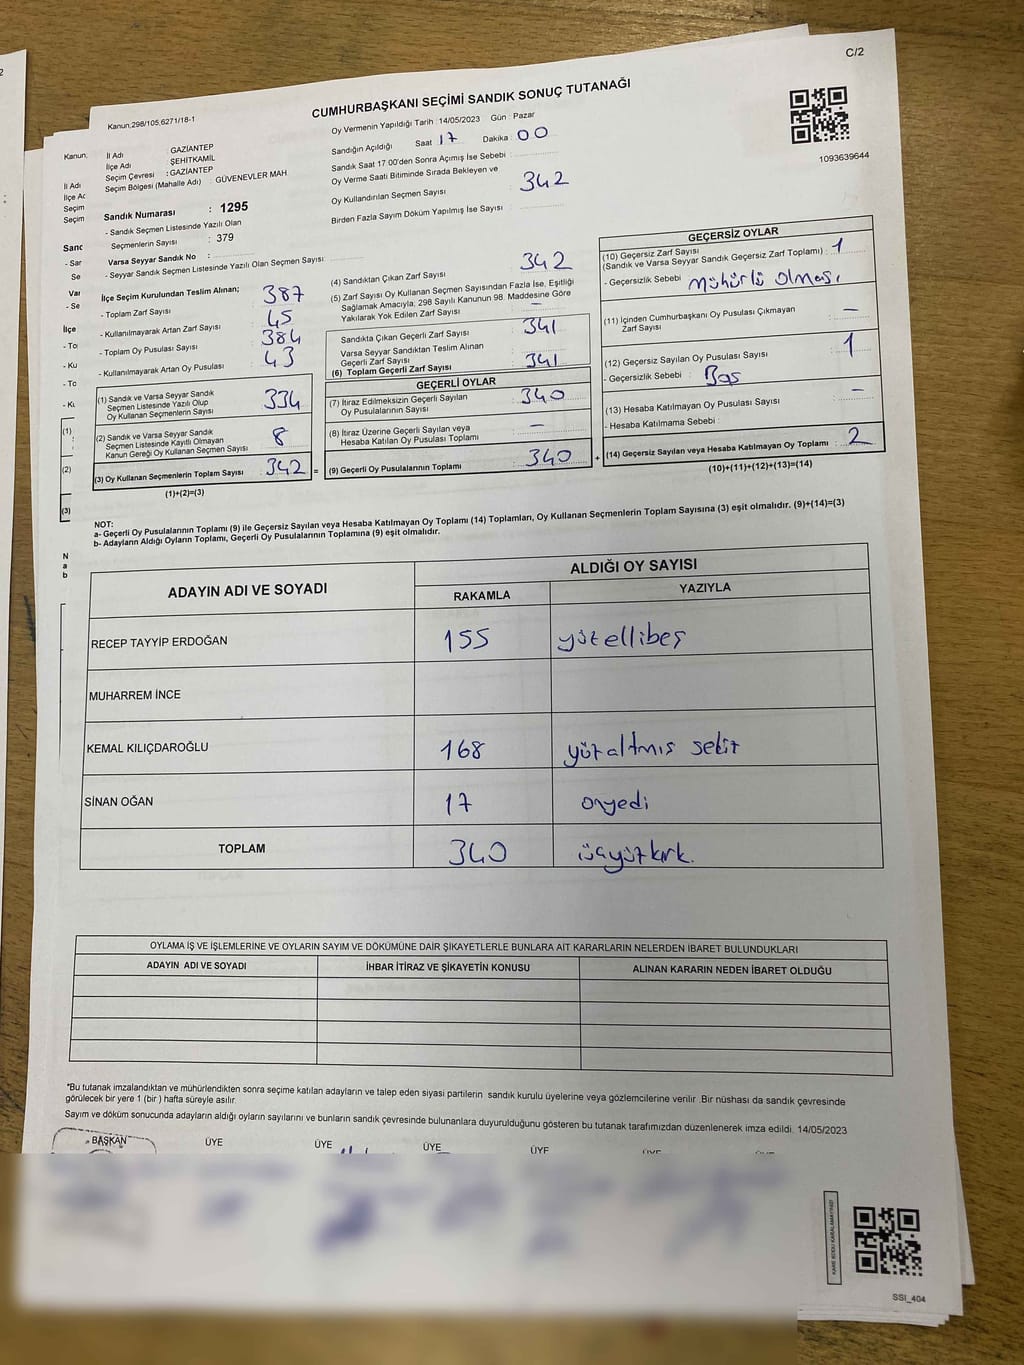 C/2
CUMHURBAŞKANI SEÇİMİ SANDIK SONUÇ TUTANAĞI
Kanun,298/105,6271/18-1
1093639644
İl Adı : GAZİANTEP
İlçe Adı ŞEHİTKAMİL
Seçim Çevresi : GAZİANTEP
Seçim Bölgesi (Mahalle Adı) : GÜVENEVLER MAH.
Sandık Numarası : 1295
- Sandık Seçmen Listesinde Yazılı Olan
Seçmenlerin Sayısı : 379
Varsa Seyyar Sandık No :
- Seyyar Sandık Seçmen Listesinde Yazılı Olan Seçmen Sayısı:
Oy Vermenin Yapıldığı Tarih : 14/05/2023 Gün : Pazar
Sandığın Açıldığı Saat 17 Dakika : 00
Sandık Saat 17 00'den Sonra Açımış İse Sebebi :
Oy Verme Saati Bitiminde Sırada Bekleyen ve
Oy Kullandırılan Seçmen Sayısı : 342
Birden Fazla Sayım Döküm Yapılmış İse Sayısı :
İlçe Seçim Kurulundan Teslim Alınan;
- Toplam Zarf Sayısı : 387
- Kullanılmayarak Artan Zarf Sayısı : 45
- Toplam Oy Pusulası Sayısı : 384
- Kullanılmayarak Artan Oy Pusulası : 43
(1) Sandık ve Varsa Seyyar Sandık
Seçmen Listesinde Yazılı Olup
Oy Kullanan Seçmenlerin Sayısı : 334
(2) Sandık ve Varsa Seyyar Sandık
Seçmen Listesinde Kayıtlı Olmayan
Kanun Gereği Oy Kullanan Seçmen Sayısı : 8
(3) Oy Kullanan Seçmenlerin Toplam Sayısı : 342 =
(1)+(2)=(3)
(4) Sandıktan Çıkan Zarf Sayısı : 342
(5) Zarf Sayısı Oy Kullanan Seçmen Sayısından Fazla İse, Eşitliği
Sağlamak Amacıyla; 298 Sayılı Kanunun 98. Maddesine Göre
Yakılarak Yok Edilen Zarf Sayısı : -
Sandıkta Çıkan Geçerli Zarf Sayısı : 341
Varsa Seyyar Sandıktan Teslim Alınan
Geçerli Zarf Sayısı
(6) Toplam Geçerli Zarf Sayısı : 341
GEÇERLİ OYLAR
(7) İtiraz Edilmeksizin Geçerli Sayılan
Oy Pusulalarının Sayısı : 340
(8) İtiraz Üzerine Geçerli Sayılan veya
Hesaba Katılan Oy Pusulası Toplamı : -
(9) Geçerli Oy Pusulalarının Toplamı : 340 +
GEÇERSİZ OYLAR
(10) Geçersiz Zarf Sayısı
(Sandık ve Varsa Seyyar Sandık Geçersiz Zarf Toplamı) : 1
- Geçersizlik Sebebi : Mühürlü Olması
(11) İçinden Cumhurbaşkanı Oy Pusulası Çıkmayan
Zarf Sayısı : -
(12) Geçersiz Sayılan Oy Pusulası Sayısı : 1
- Geçersizlik Sebebi : Boş
(13) Hesaba Katılmayan Oy Pusulası Sayısı : -
- Hesaba Katılmama Sebebi :
(14) Geçersiz Sayılan veya Hesaba Katılmayan Oy Toplamı : 2
(10)+(11)+(12)+(13)=(14)
NOT:
a- Geçerli Oy Pusulalarının Toplamı (9) ile Geçersiz Sayılan veya Hesaba Katılmayan Oy Toplamı (14) Toplamları, Oy Kullanan Seçmenlerin Toplam Sayısına (3) eşit olmalıdır. (9)+(14)=(3)
b- Adayların Aldığı Oyların Toplamı, Geçerli Oy Pusulalarının Toplamına (9) eşit olmalıdır.
ADAYIN ADI VE SOYADI
ALDIĞI OY SAYISI
RAKAMLA YAZIYLA
RECEP TAYYİP ERDOĞAN 155 yüzellibeş
MUHARREM İNCE
KEMAL KILIÇDAROĞLU 168 yüzaltmış sekiz
SİNAN OĞAN 17 onyedi
TOPLAM 340 üçyüzkırk.
OYLAMA İŞ VE İŞLEMLERİNE VE OYLARIN SAYIM VE DÖKÜMÜNE DAİR ŞİKAYETLERLE BUNLARA AİT KARARLARIN NELERDEN İBARET BULUNDUKLARI
ADAYIN ADI VE SOYADI İHBAR İTİRAZ VE ŞİKAYETİN KONUSU ALINAN KARARIN NEDEN İBARET OLDUĞU
*Bu tutanak imzalandıktan ve mühürlendikten sonra seçime katılan adayların ve talep eden siyasi partilerin sandık kurulu üyelerine veya gözlemcilerine verilir. Bir nüshası da sandık çevresinde
görülecek bir yere 1 (bir ) hafta süreyle asılır.
Sayım ve döküm sonucunda adayların aldığı oyların sayılarını ve bunların sandık çevresinde bulunanlara duyurulduğunu gösteren bu tutanak tarafımızdan düzenlenerek imza edildi. 14/05/2023
BAŞKAN ÜYE ÜYE ÜYE ÜYE
KARE KODU KARALAMAYINIZ!
SSI_404